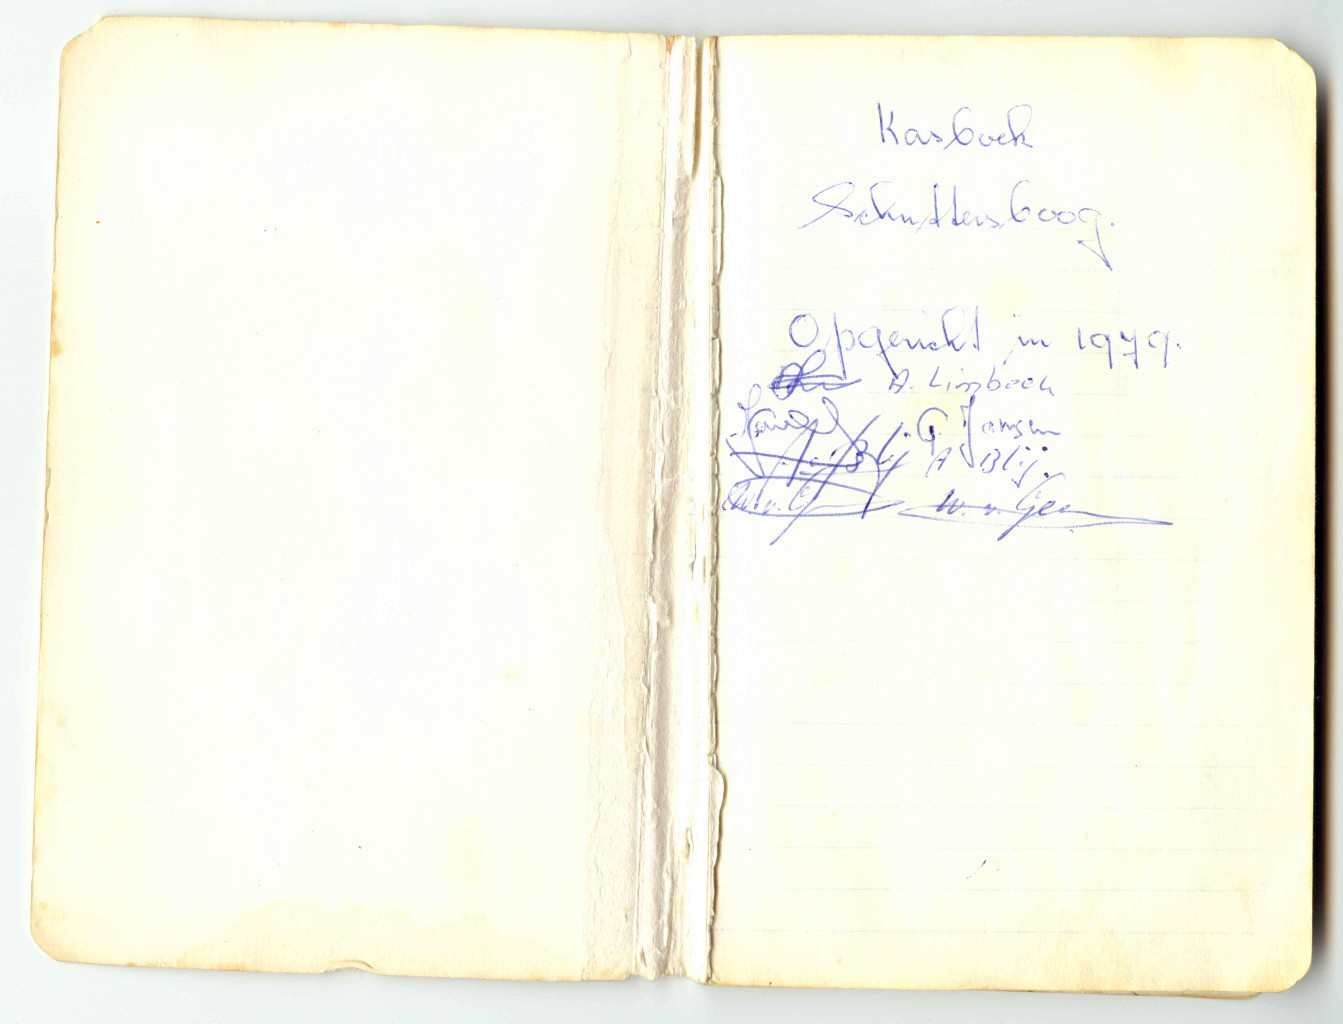 Kasboek
Schuttersboog.
Opgericht in 1979.
A. Limbeek
G. Jansen
A Blij.
W. v. Geen